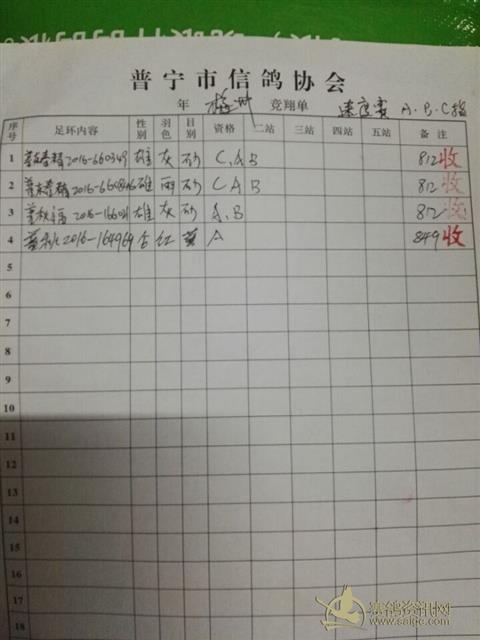 普宁市信鸽协会
年 梅州 竞翔单 速度赛 A·B·C指
序号 足环内容 性别 羽色 目别 资格 二站 三站 四站 五站 备注
1 2016-660349 雄 灰 砂 C,A,B 812 收
2 2016- 雄 雨 砂 C A B 812 收
3 2016-166 雄 灰 砂 A,B 812 收
4 2016-164964 红 黄 A 849 收
5
6
7
8
9
10
11
12
13
14
15
16
17
18
赛鸽资讯网
www.saige.com